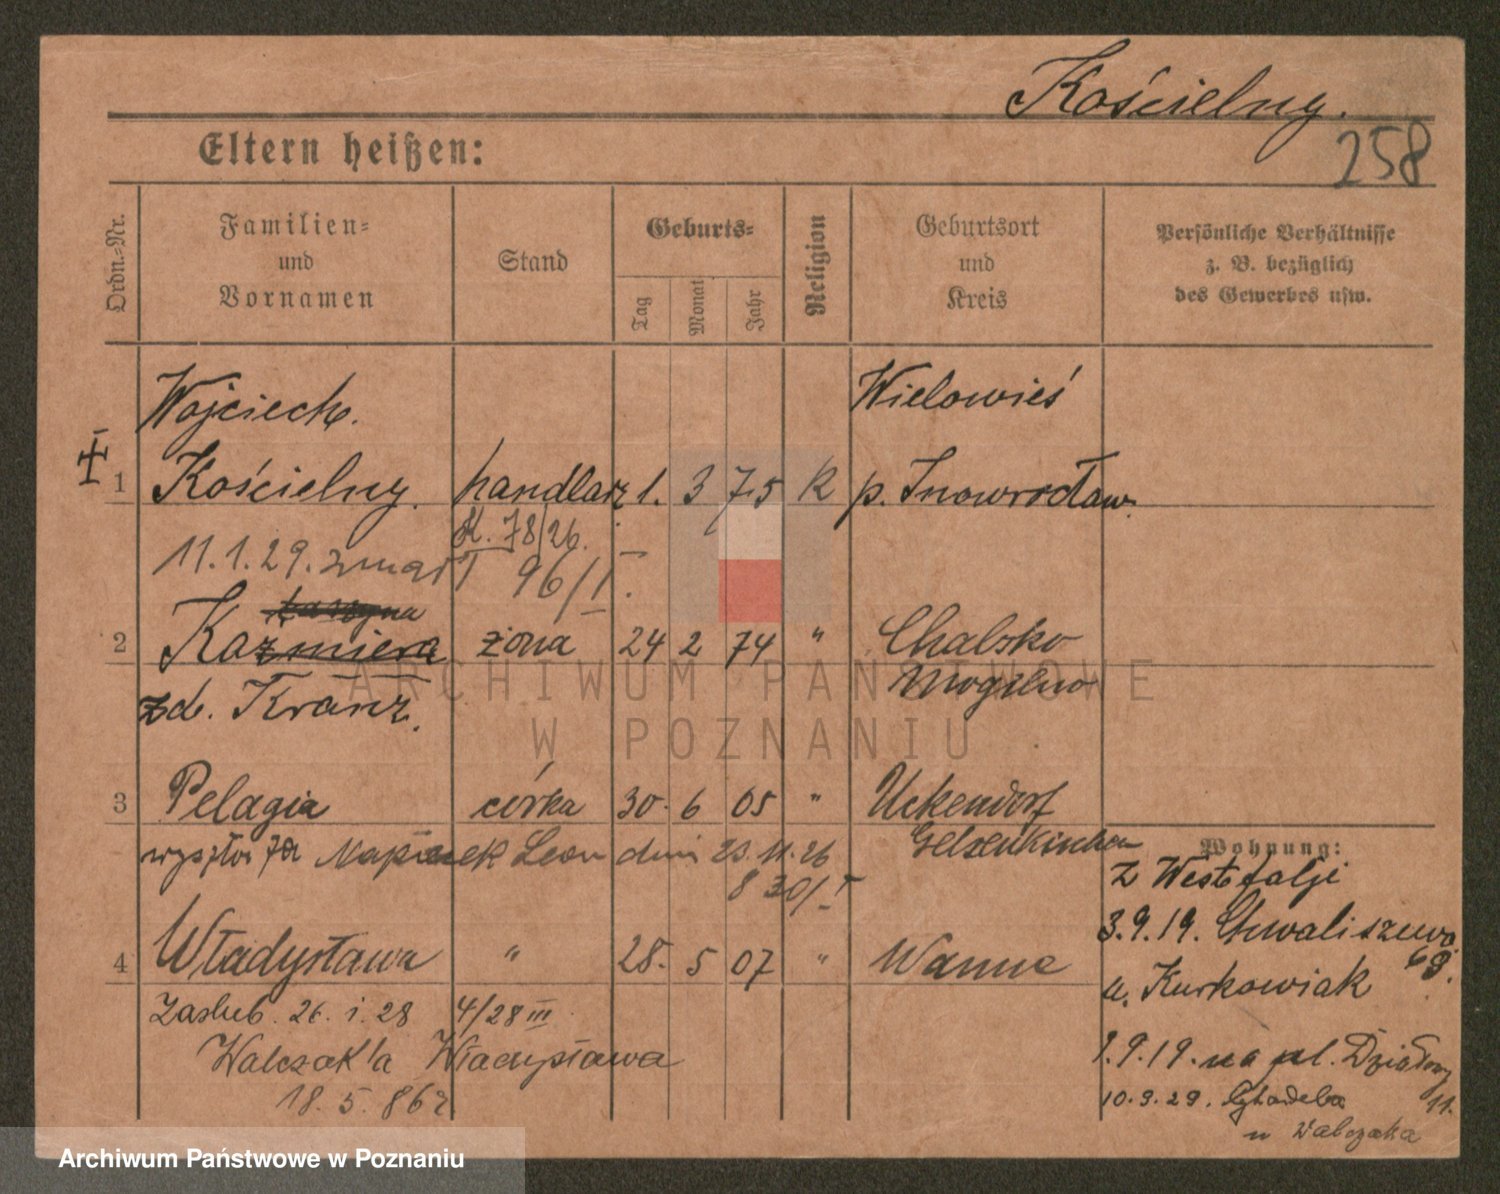 Kościelny.
258
Eltern heißen:
Ordn.=Nr.
Familien=
und
Vornamen
Stand
Geburts=
Tag
Monat
Jahr
Religion
Geburtsort
und
Kreis
Persönliche Verhältnisse
z. B. bezüglich
des Gewerbes usw.
Wojciech. Wielowieś
1 Kościelny. handlarz 1. 3 75 k p. Inowrocław.
K. 78/26.
11.1.29. zmarł 96/I.
2 Kaźmiera żona 24 2 74 " Chalsko
zd. Kranz. Mogilno
3 Pelagia córka 30. 6 05 " Uckendorf
wyszła za Napierek Leon dnia 23.11.26 Gelsenkirchen
8 30/I
Wohnung:
Z Westfalji
3.9.19. Chwaliszewo
69.
4 Władysława " 28. 5 07 " Wanne
u. Kurkowiak
Zaślub. 26. 1. 28 4/28 III
Walczak'a Władysława
18. 5.
1.9.19. na pl. Działowy
11.
10.9.29.
u Walczaka
ARCHIWUM PAŃSTWOWE
W POZNANIU
Archiwum Państwowe w Poznaniu